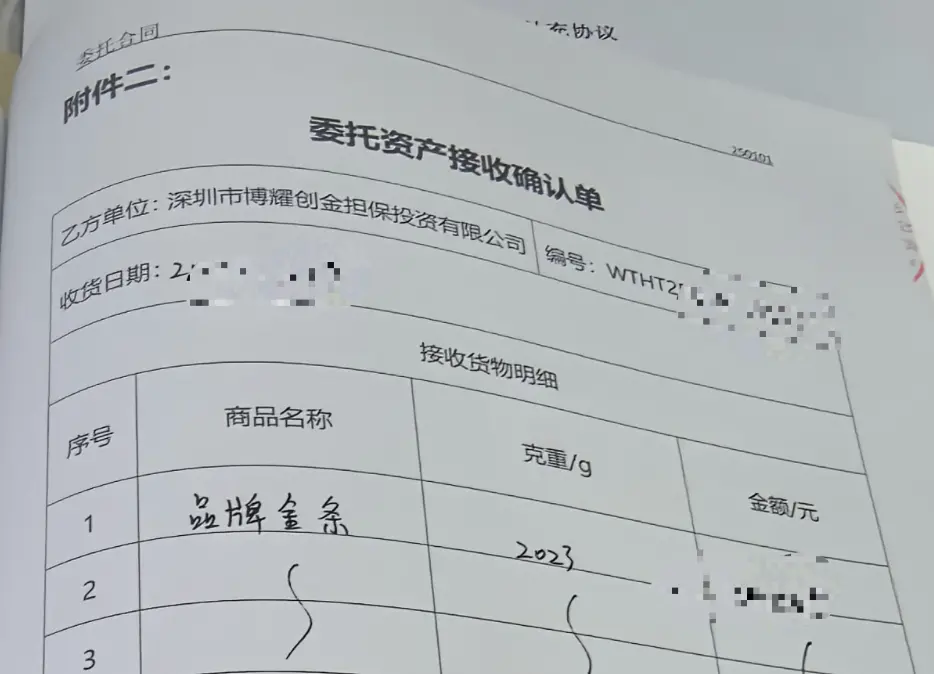 充协议
委托合同
250101
附件二：
委托资产接收确认单
乙方单位：深圳市博耀创金担保投资有限公司
编号：WTHT2
收货日期：2
接收货物明细
序号 商品名称 克重/g 金额/元
1 品牌金条 2023
2
3